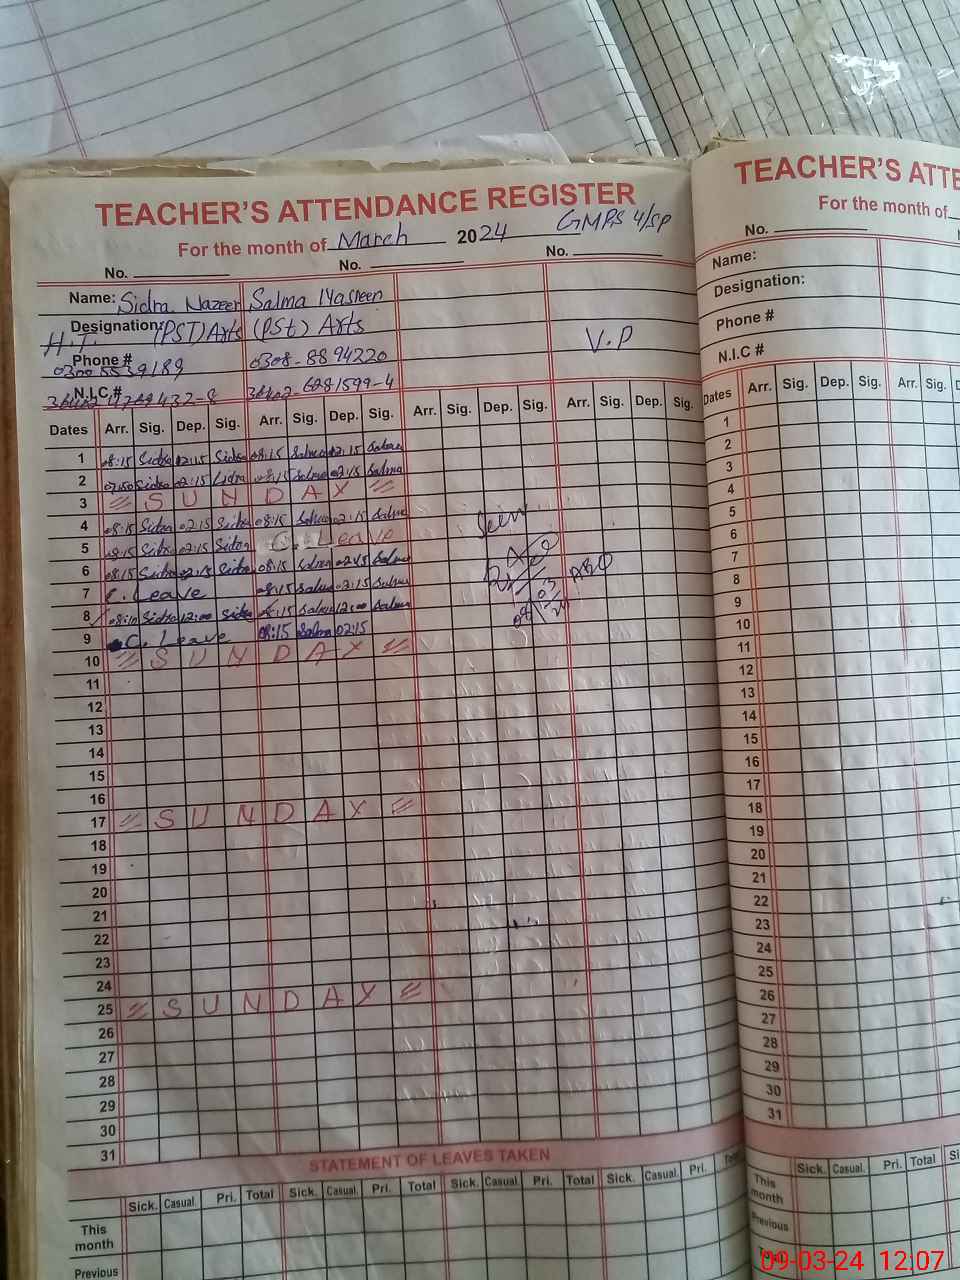 TEACHER'S ATTENDANCE REGISTER
For the month of March 2024 GMPS 4/SP
No. No. No.
Name: Sidra Nazeer Salma Yasmeen
Designation: (PST) Arts (PSt) Arts
H.T.
Phone # 0308-8894220 V.P
N.I.C #
Dates Arr. Sig. Dep. Sig. Arr. Sig. Dep. Sig. Arr. Sig. Dep. Sig. Arr. Sig. Dep. Sig.
1 08:15 Sidra 02:15 Sidra 08:15 Salma 02:15 Salma
2 07:50 Sidra 02:15 Sidra 08:15 Salma 02:15 Salma
3 SUNDAY
4 08:15 Sidra 02:15 Sidra 08:15 Salma 02:15 Salma
5 08:15 Sidra 02:15 Sidra C. Leave Seen
6 08:15 Sidra 02:15 Sidra 08:15 Salma 02:15 Salma
7 C. Leave 08:15 Salma 02:15 Salma
8 08:10 Sidra 12:00 Sidra 08:15 Salma 12:00 Salma
9 C. Leave 08:15 Salma 02:15
10 SUNDAY
11
12
13
14
15
16
17 SUNDAY
18
19
20
21
22
23
24
25 SUNDAY
26
27
28
29
30
31
STATEMENT OF LEAVES TAKEN
Sick. Casual. Pri. Total Sick. Casual. Pri. Total Sick. Casual. Pri. Total Sick. Casual. Pri.
This
month
Previous
TEACHER'S ATTE
For the month of
No.
Name:
Designation:
Phone #
N.I.C #
Dates Arr. Sig. Dep. Sig. Arr. Sig.
1
2
3
4
5
6
7
8
9
10
11
12
13
14
15
16
17
18
19
20
21
22
23
24
25
26
27
28
29
30
31
Sick. Casual. Pri. Total
This
month
Previous
09-03-24 12:07